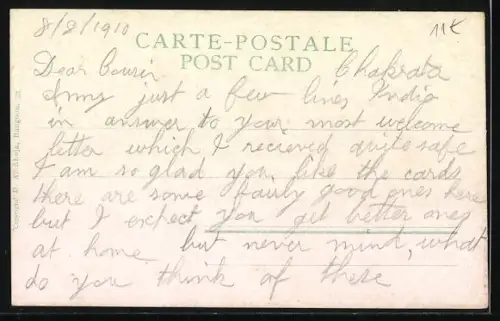 8/8/1910 11€
CARTE-POSTALE
POST CARD
Dear Cousin Chakrata
just a few lines India
in answer to your most welcome
letter which I recieved quite safe
I am so glad you like the cards
there are some fairly good ones here
but I expect you get better ones
at home but never mind, what
do you think of these